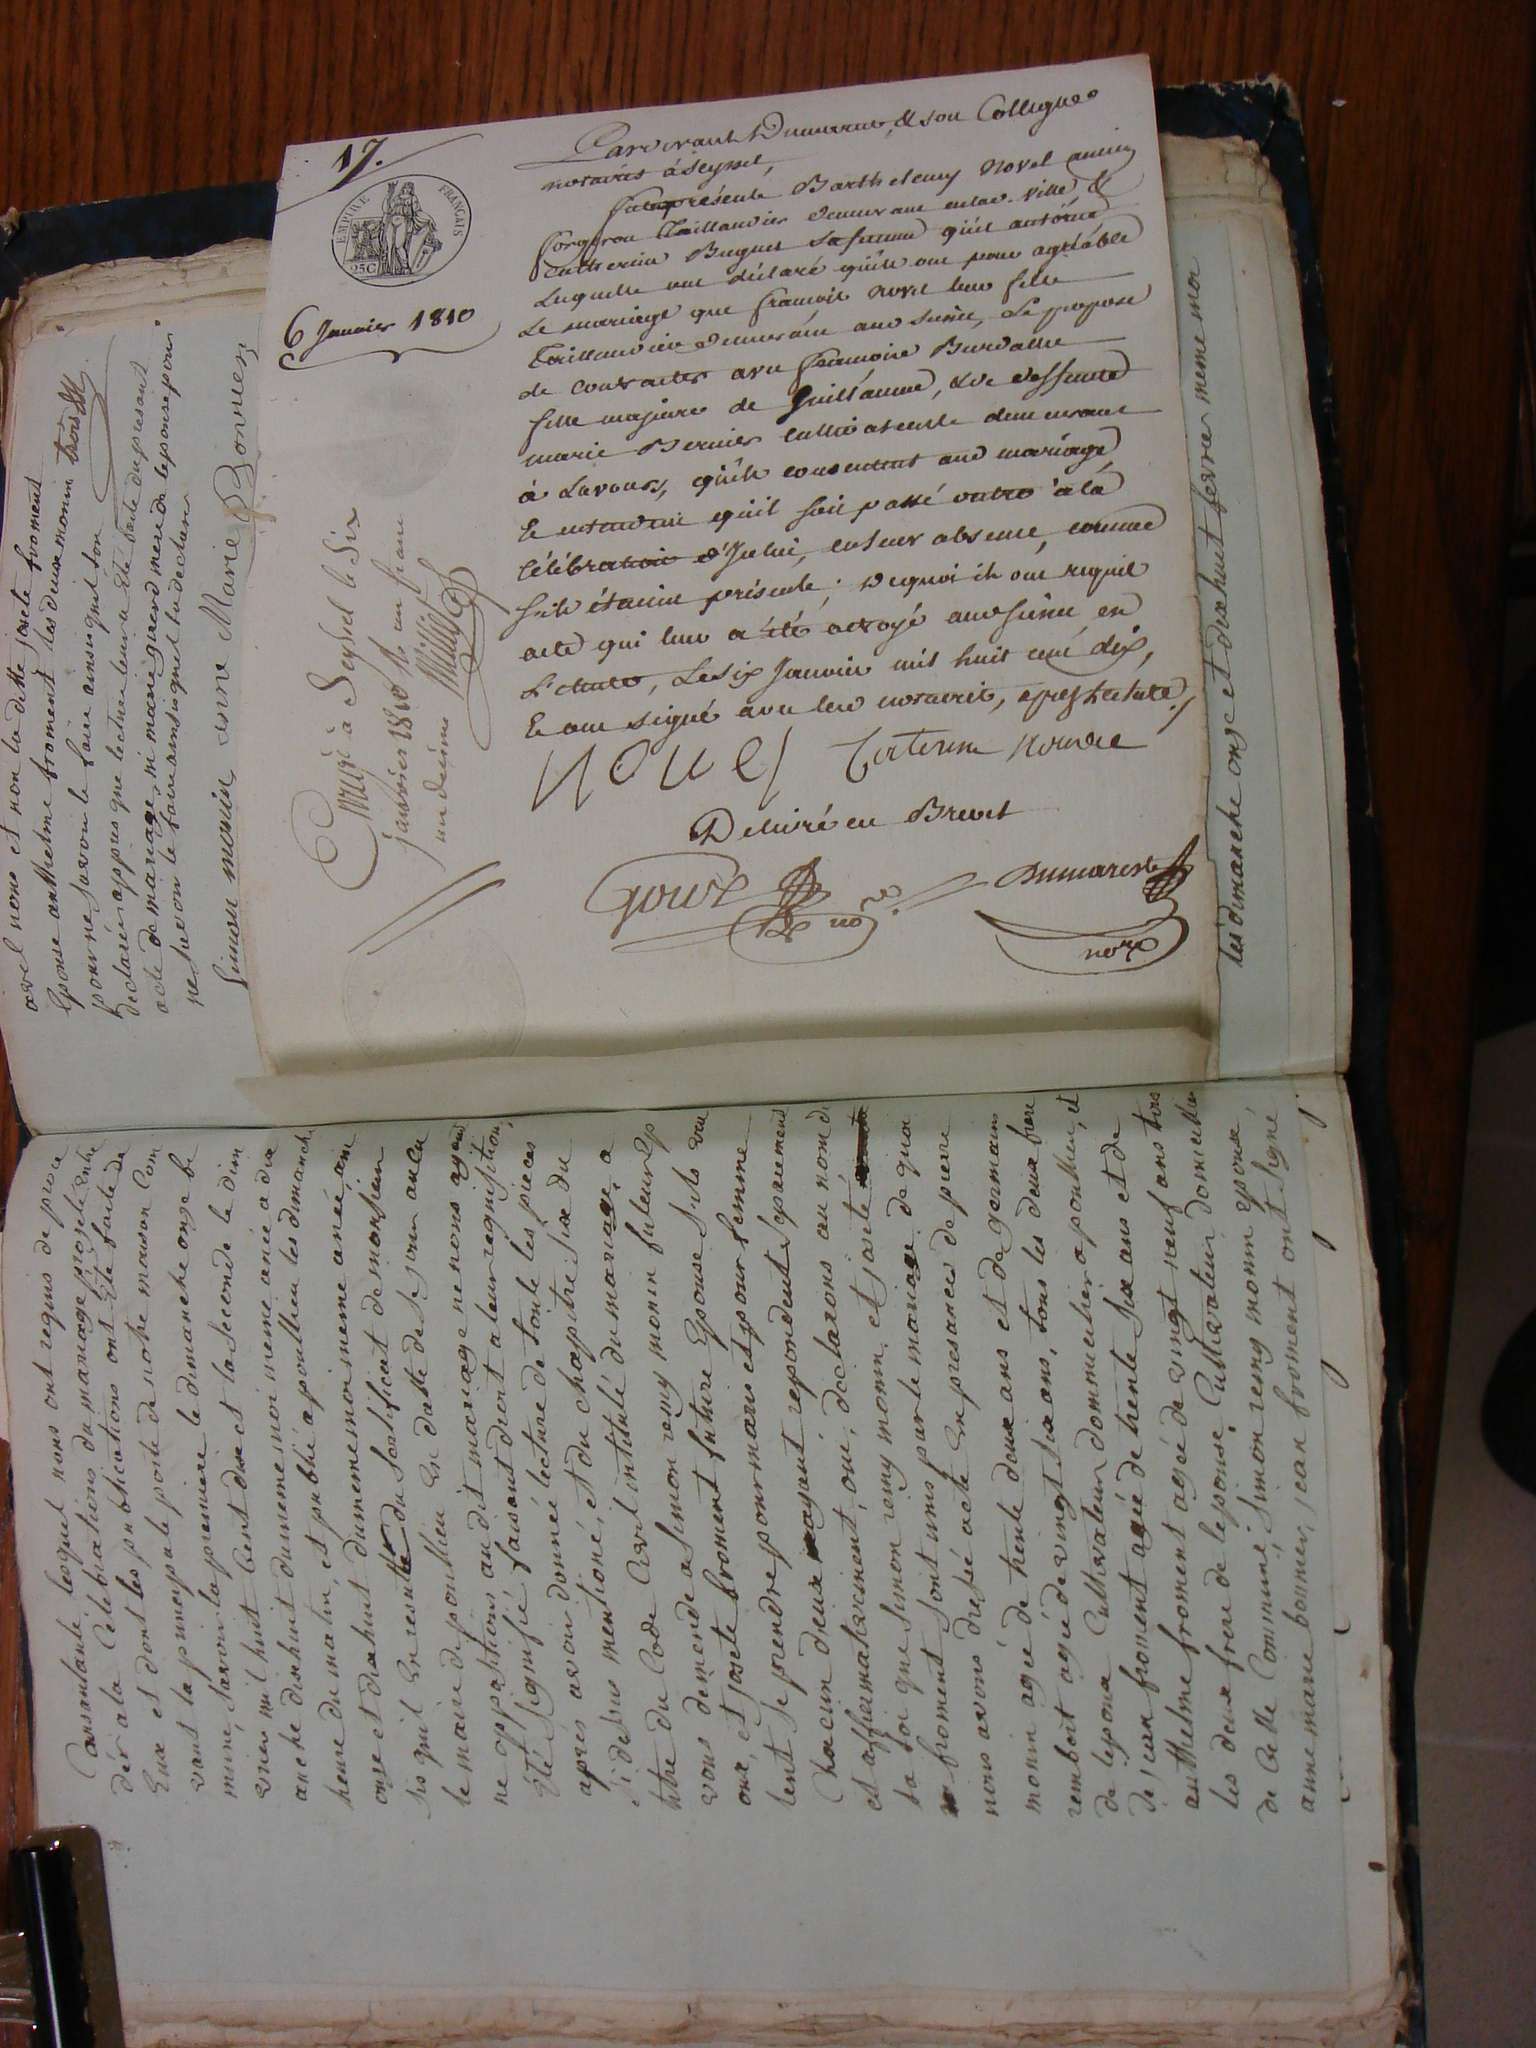 17.
EMPIRE FRANÇAIS
25C
6 Janvier 1810
Pardevant Dumarest, & son Collègue
notaires à Seyssel,
fut présente Barthelemy Novel ancien
forgeron Taillandier demeurant en lad. ville &
Catherine Buguet sa femme qu'il autorise
Lesquels ont déclaré qu'ils ont pour agréable
Le mariage que françois Novel leur fils
Taillandier demeurant aud Seyssel, se propose
de contracter avec françoise
fille majeure de Guillaume, & de deffunte
marie Bernier demeurant
à Lavours, qu'ils consentent aud mariage,
Et entendent qu'il soit passé outre à la
célébration d'Icelui, en leur absence, comme
s'ils étaient présents; Dequoi ils ont requis
acte qui leur a été octroyé aud Seyssel en
L'étude, Le six Janvier mil huit cent dix,
Et ont signé avec les notaires, après lecture./
Novel Caterine
Delivré en Brevet
Dumarest
nore
Enregé à Seyssel le Six
janvier 1810 Rç un franc
un décime Millet
avel nous et non la ditte josete froment
Epouse anthelme froment les deux monin
pour ne savoir le faire ainsin quil son
declaré en appres que lecture leur a été faite du present
acte de mariage, ni marie girerd mere de lepouse pour
ne savoir le faire ainsi quel la declaré
Simon monin anne Marie Bonnes
les dimanche onze et dixhuit fevrier meme moi
Consentante lesquel nous ont requis de proce
der a la Celebrations du mariage projeté entre
Eux et dont les publications ont été faite de
vant la principale porte de notre maison Com
mune, savoir la premiere le dimanche onze fe
vrier mil huit Cent dix et la seconde le dim
anche dixhuit dumeme moi meme année a dix
heure du matin, et publié a pouillieu les dimanche
onze et dixhuit dumeme moi meme année ain
sis quil En resulte du Sertificat de monsieur
le maire de pouillieu En datte de se jour aucu
ne oppositions au dit mariage ne nous ayent
Eté signifié, faisant droit a leur requisition,
apres avoir donné lecture de toute les pieces
Si desus mentioné, et du chapitre six du
titre du Code Civil intitulé du mariage, a
vons demende a simon remy monin futeur Ep
oux, et josete froment future Epouse s'ils veu
lent se prendre pour maris et pour femme
Chacun d'eux ayent repondent separement
et affirmativement, oui, declarons au nom d
la loi que simon remy monin et josete
froment sont unis par le mariage de quoi
nous avons dressé acte En presance de pierre
monin agée de trente deux ans et de germain
rembert agée de vingt six ans, tous les deux frere
de lepoux Cultivateur dommicilier a pouillieu, et
de jean froment agée de trente six ans et de
anthelme froment agée de vingt neuf ans tous
les deux frere de lepouse Cultivateur domicillier
de Cette Commune, simon remy monin epoux
anne marie bonnes, jean froment ont signé